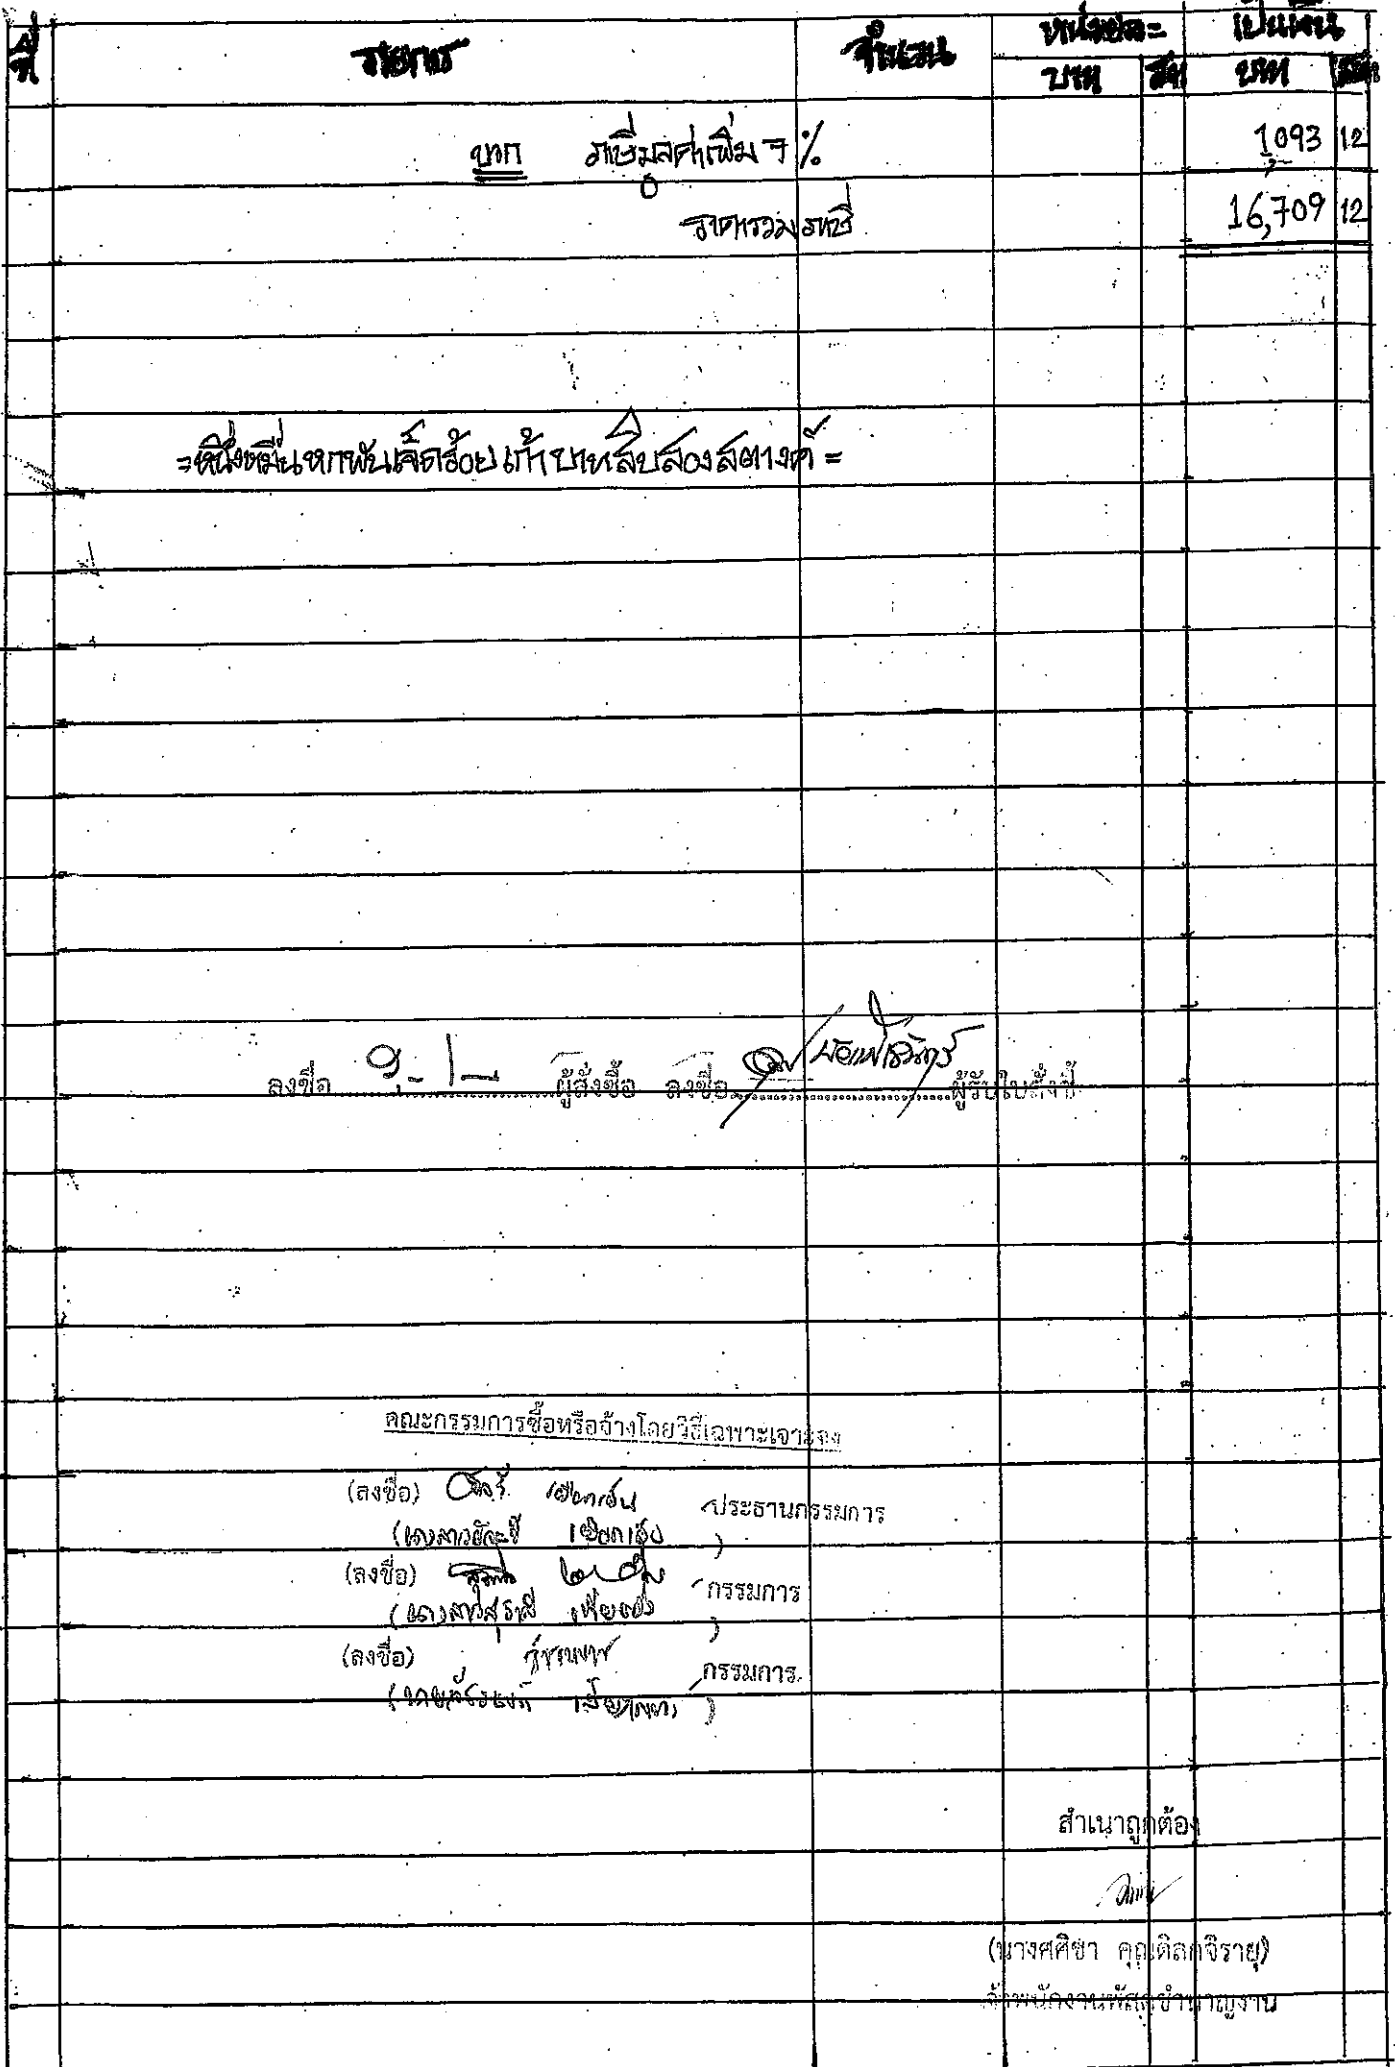 ที่ รายการ จำนวน หน่วยละ เป็นเงิน
บาท สต บาท สต
บวก ภาษีมูลค่าเพิ่ม 7 % 1,093 12
ราคารวมภาษี 16,709 12
=หนึ่งหมื่นหกพันเจ็ดร้อยเก้าบาทสิบสองสตางค์=
ลงชื่อ ผู้สั่งซื้อ ลงชื่อ ผู้รับใบสั่งซื้อ
คณะกรรมการซื้อหรือจ้างโดยวิธีเฉพาะเจาะจง
(ลงชื่อ) ประธานกรรมการ
(ลงชื่อ) กรรมการ
(ลงชื่อ) กรรมการ
สำเนาถูกต้อง
(นางศศิชา คุณดิลกจิรายุ)
เจ้าพนักงานพัสดุชำนาญงาน